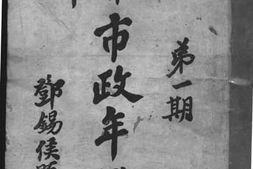 第一期
市政年
鄧錫侯